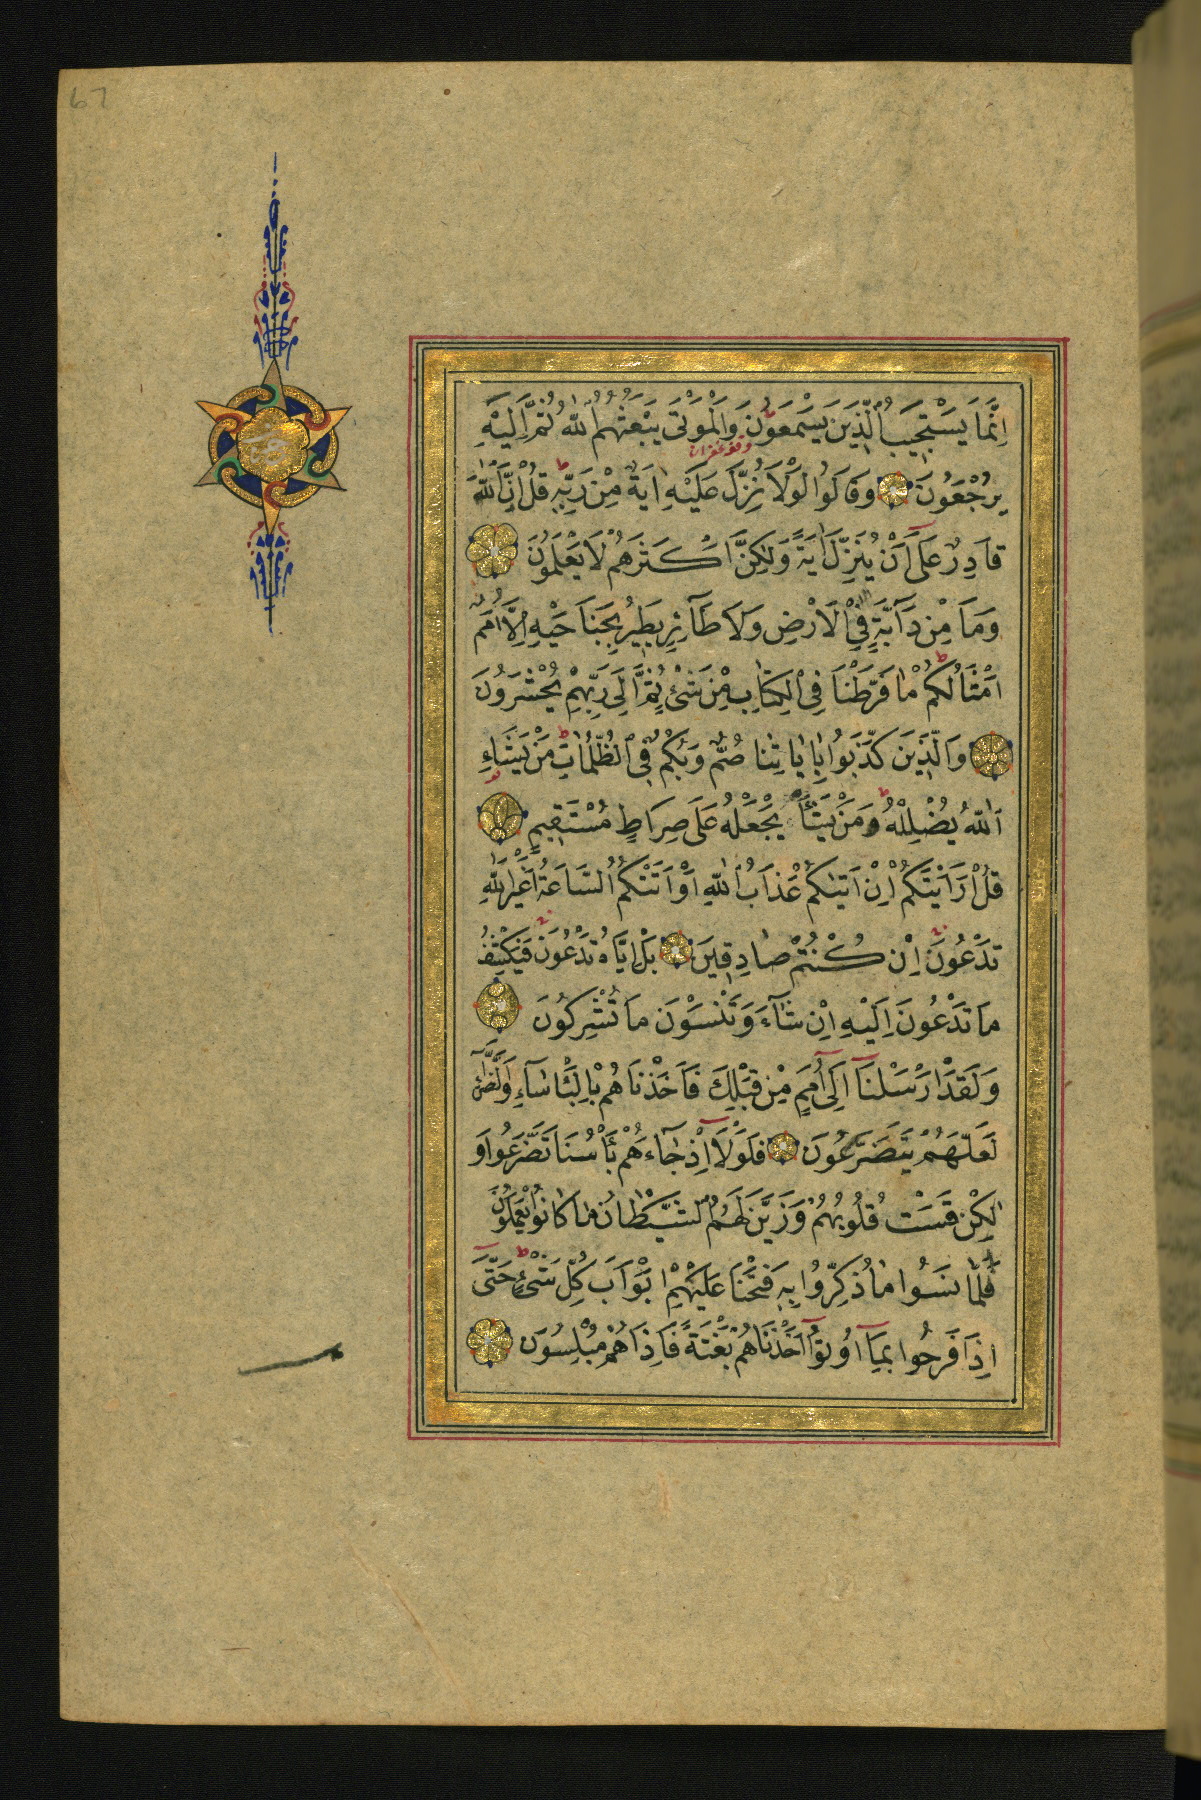 67
اِنَّمَا يَسْتَجِيبُ الَّذِينَ يَسْمَعُونَ وَالْمَوْتٰى يَبْعَثُهُمُ اللّٰهُ ثُمَّ اِلَيْهِ
يُرْجَعُونَ وَقَالُوا لَوْلَا نُزِّلَ عَلَيْهِ اٰيَةٌ مِنْ رَبِّهٖ قُلْ اِنَّ اللّٰهَ
قَادِرٌ عَلٰٓى اَنْ يُنَزِّلَ اٰيَةً وَلٰكِنَّ اَكْثَرَهُمْ لَا يَعْلَمُونَ
وَمَا مِنْ دَآبَّةٍ فِي الْاَرْضِ وَلَا طَآئِرٍ يَطِيرُ بِجَنَاحَيْهِ اِلَّا اُمَمٌ
اَمْثَالُكُمْ مَا فَرَّطْنَا فِي الْكِتَابِ مِنْ شَيْءٍ ثُمَّ اِلٰى رَبِّهِمْ يُحْشَرُونَ
وَالَّذِينَ كَذَّبُوا بِاٰيَاتِنَا صُمٌّ وَبُكْمٌ فِي الظُّلُمَاتِ مَنْ يَشَاءِ
اللّٰهُ يُضْلِلْهُ وَمَنْ يَشَأْ يَجْعَلْهُ عَلٰى صِرَاطٍ مُسْتَقِيمٍ
قُلْ اَرَاَيْتَكُمْ اِنْ اَتٰيكُمْ عَذَابُ اللّٰهِ اَوْ اَتَتْكُمُ السَّاعَةُ اَغَيْرَ اللّٰهِ
تَدْعُونَ اِنْ كُنْتُمْ صَادِقِينَ بَلْ اِيَّاهُ تَدْعُونَ فَيَكْشِفُ
مَا تَدْعُونَ اِلَيْهِ اِنْ شَآءَ وَتَنْسَوْنَ مَا تُشْرِكُونَ
وَلَقَدْ اَرْسَلْنَآ اِلٰٓى اُمَمٍ مِنْ قَبْلِكَ فَاَخَذْنَاهُمْ بِالْبَاْسَآءِ وَالضَّرَّآءِ
لَعَلَّهُمْ يَتَضَرَّعُونَ فَلَوْلَآ اِذْ جَآءَهُمْ بَاْسُنَا تَضَرَّعُوا وَ
لٰكِنْ قَسَتْ قُلُوبُهُمْ وَزَيَّنَ لَهُمُ الشَّيْطَانُ مَا كَانُوا يَعْمَلُونَ
فَلَمَّا نَسُوا مَا ذُكِّرُوا بِهٖ فَتَحْنَا عَلَيْهِمْ اَبْوَابَ كُلِّ شَيْءٍ حَتّٰٓى
اِذَا فَرِحُوا بِمَآ اُوتُوٓا اَخَذْنَاهُمْ بَغْتَةً فَاِذَا هُمْ مُبْلِسُونَ